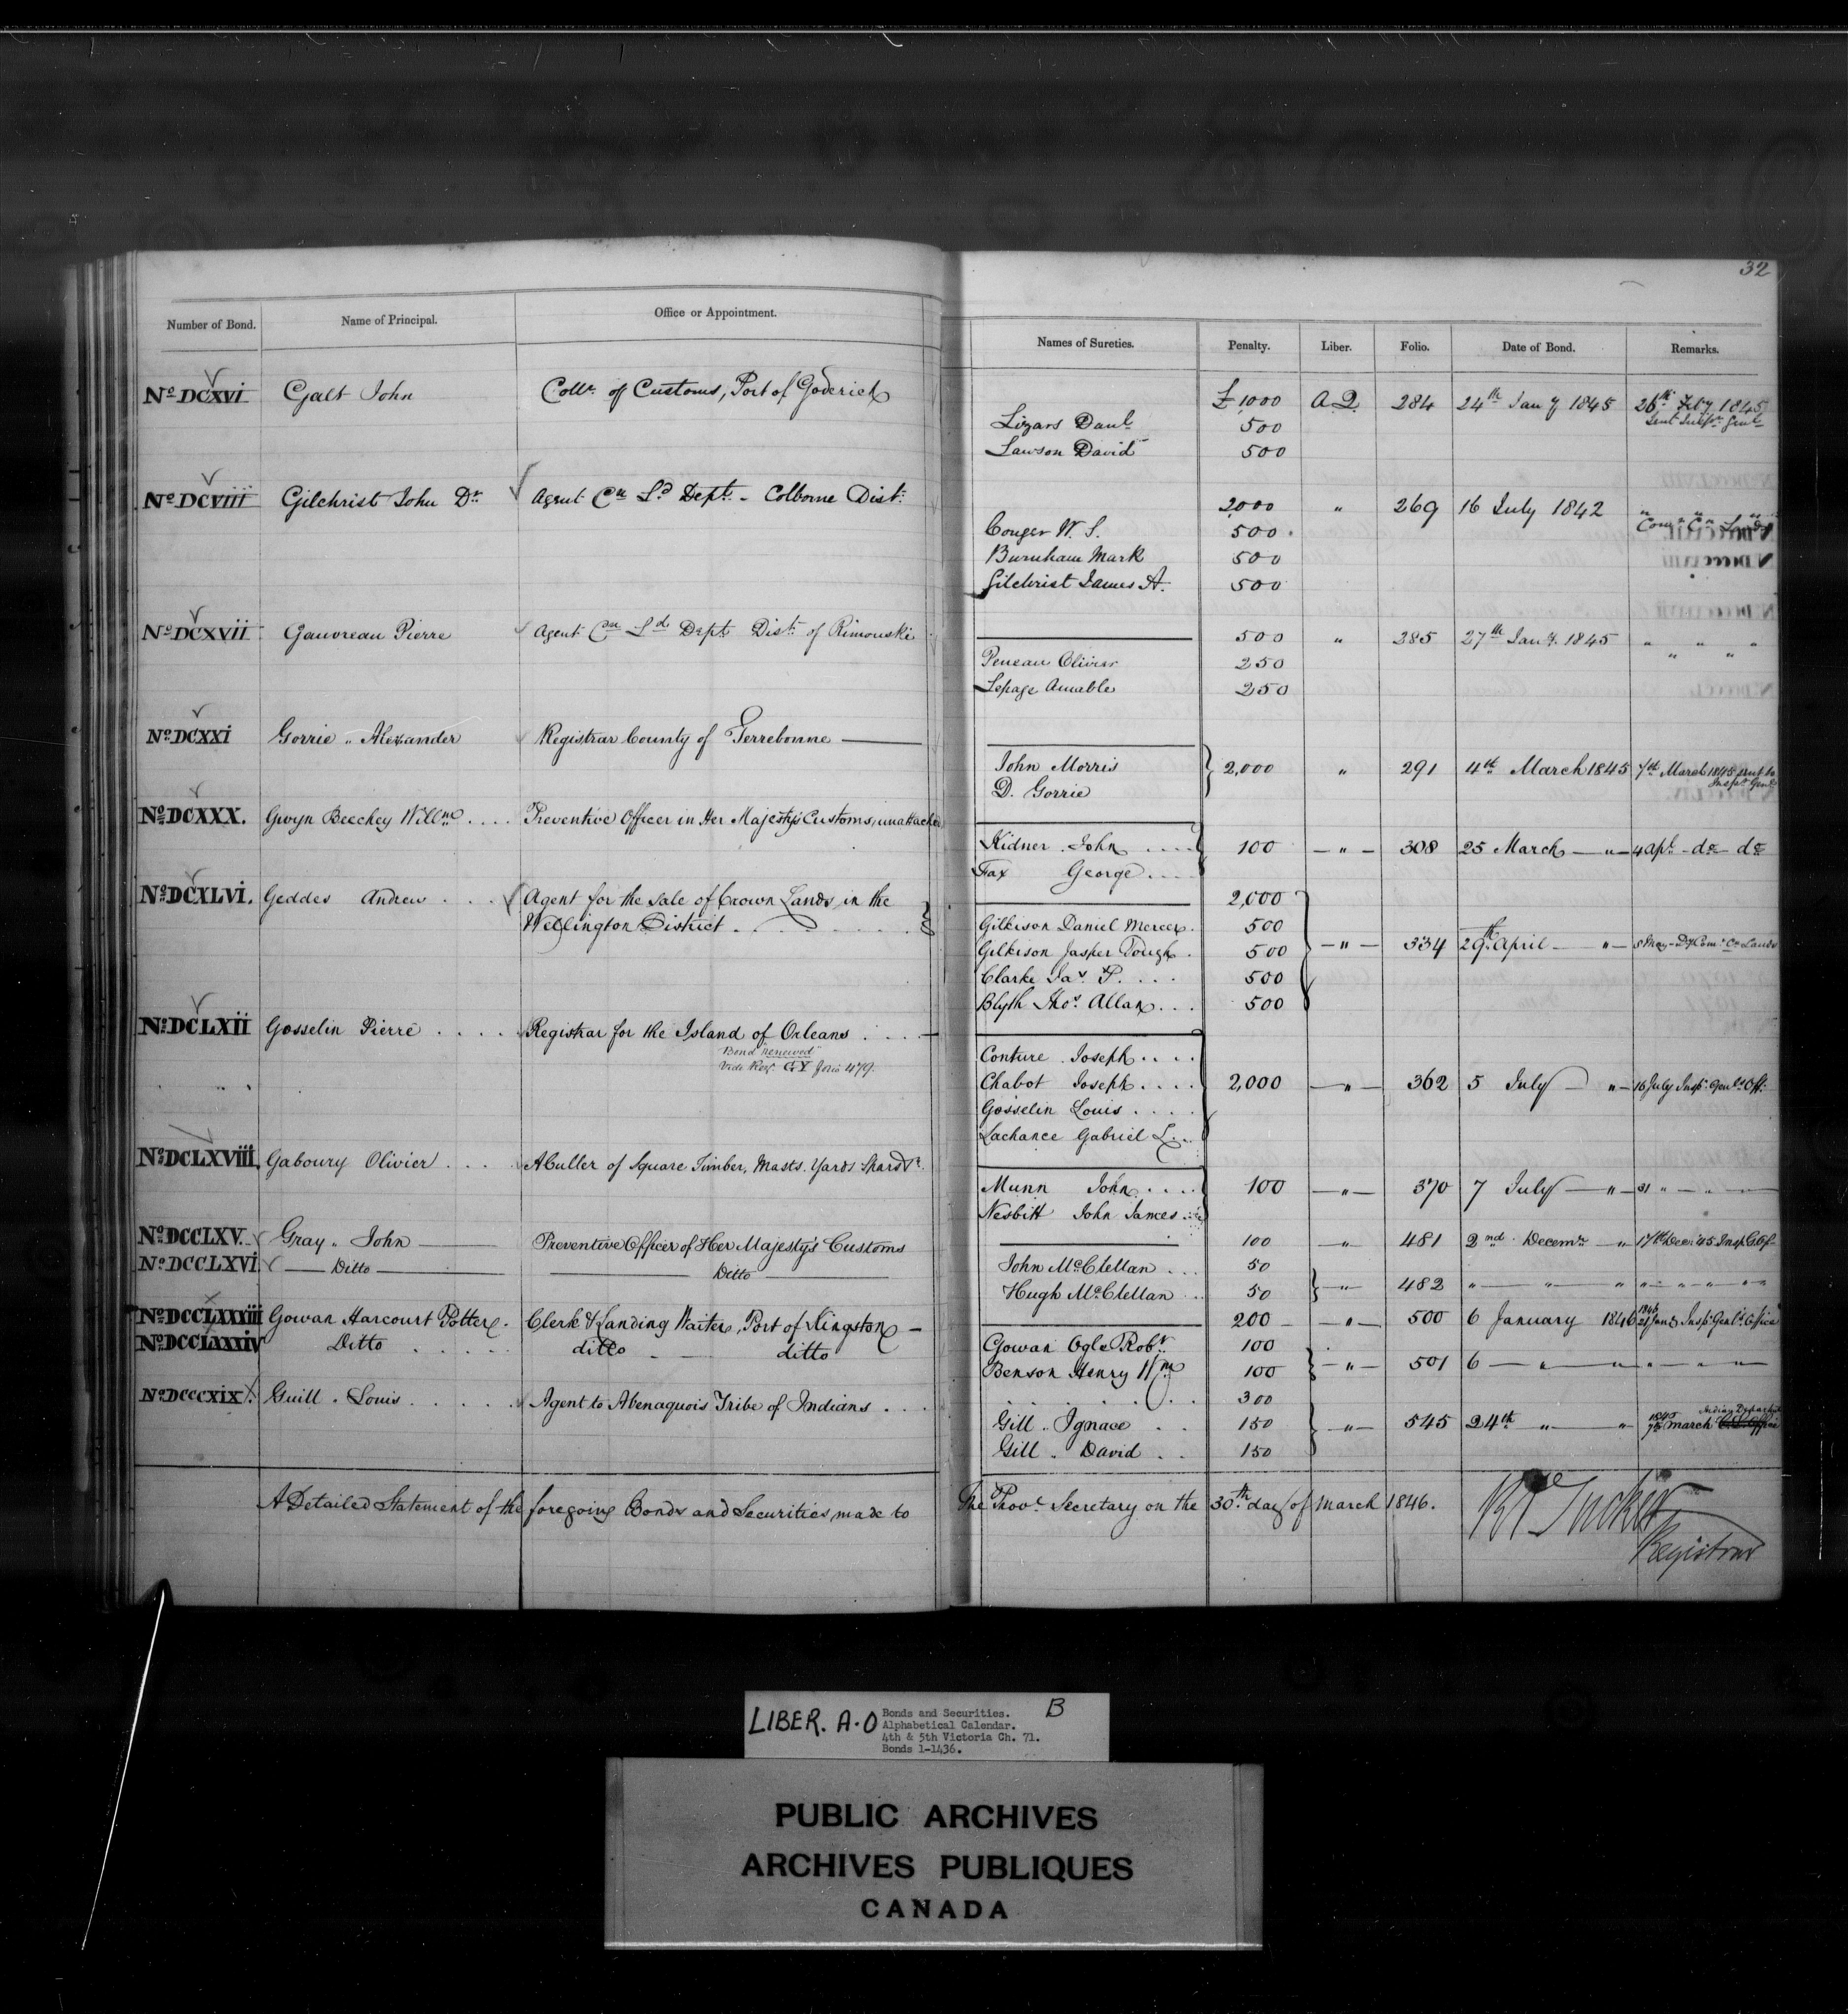 32
Number of Bond. Name of Principal. Office or Appointment. Names of Sureties. Penalty. Liber. Folio. Date of Bond. Remarks.
No DCXVI Galt John Collr of Customs, Port of Goderich £1000 A.Q. 284 24th Jany 1845 26th Feby 1845
Lizars Danl 500 Sent Inspr Genl
Lawson David 500
No DCVIII Gilchrist John Dr Agent Cn Ld Dept - Colborne Dist: 2000 " 269 16 July 1842 " " "
Conger W. S. 500 Comr Cn Lands
Burnham Mark 500
Gilchrist James A. 500
No DCXVII Gauvreau Pierre Agent Cn Ld Dept Dist: of Rimouski 500 " 285 27th Jany. 1845 " " "
Peneau Olivier 250 " "
Lepage Amable 250
No DCXXI Gorrie " Alexander Registrar County of Terrebonne
John Morris 2,000 " 291 4th March 1845 7th March 1845 sent to
D. Gorrie Inspr Genl
No DCXXX. Gwyn Beechey Willm .... Preventive Officer in Her Majesty's Customs, unattached
Kidner John .... 100 — " — 308 25 March — " — 4 Apl - do - do
Fax George ....
No DCXLVI. Geddes Andrew .... Agent for the sale of Crown Lands in the 2,000
Wellington District ....
Gilkison Daniel Mercer. 500
Gilkison Jasper Tough. 500 — " — 334 29th April — " — 5 May - Dy Comr Cn Lands
Clarke Jas P. ... 500
Blyth Thos Allan ... 500
No DCLXII Gosselin Pierre .... Registrar for the Island of Orleans ....
Bond "renewed"
Vide Reg. GY folio 479.
Couture Joseph ....
Chabot Joseph .... 2,000 — " — 362 5 July — " — 16 July Inspr Genls Off:
Gosselin Louis ....
Lachance Gabriel L. ..
No DCLXVIII. Gaboury Olivier .... A Culler of Square Timber, Masts. Yards Spars &c.
Munn John .... 100 — " — 370 7 July — " — 31 " — " —
Nesbitt John James ...
No DCCLXV. Gray " John Preventive Officer of Her Majesty's Customs 100 — " — 481 2nd Decemr — " 17th Decr '45 Insp G. Of
No DCCLXVI — Ditto — — Ditto —
John McClellan ... 50
Hugh McClellan .. 50 — " — 482 " — " — " " — " — " — " "
No DCCLXXXIII Gowan Harcourt Potter. Clerk & Landing Waiter, Port of Kingston — 200 — " — 500 6 January 1846 1846 21 Jany Inspr Genl's Office
No DCCLXXXIV Ditto ..... ditto — ditto
Gowan Ogle Robt 100
Benson Henry Wm 100 — " — 501 6 — " — " — " — " — "
No DCCCXIX. Guill " Louis ..... Agent to Abenaquois Tribe of Indians .... 300
Gill " Ignace .. 150 — " — 545 24th " — " 1845 7th March Indian Departmt
Gill " David .. 150
A Detailed Statement of the foregoing Bonds and Securities made to The Provl Secretary on the 30th day of March 1846.
Tucker
Registrar
LIBER. A-O Bonds and Securities. B
Alphabetical Calendar.
4th & 5th Victoria Ch. 71.
Bonds 1-1436.
PUBLIC ARCHIVES
ARCHIVES PUBLIQUES
CANADA